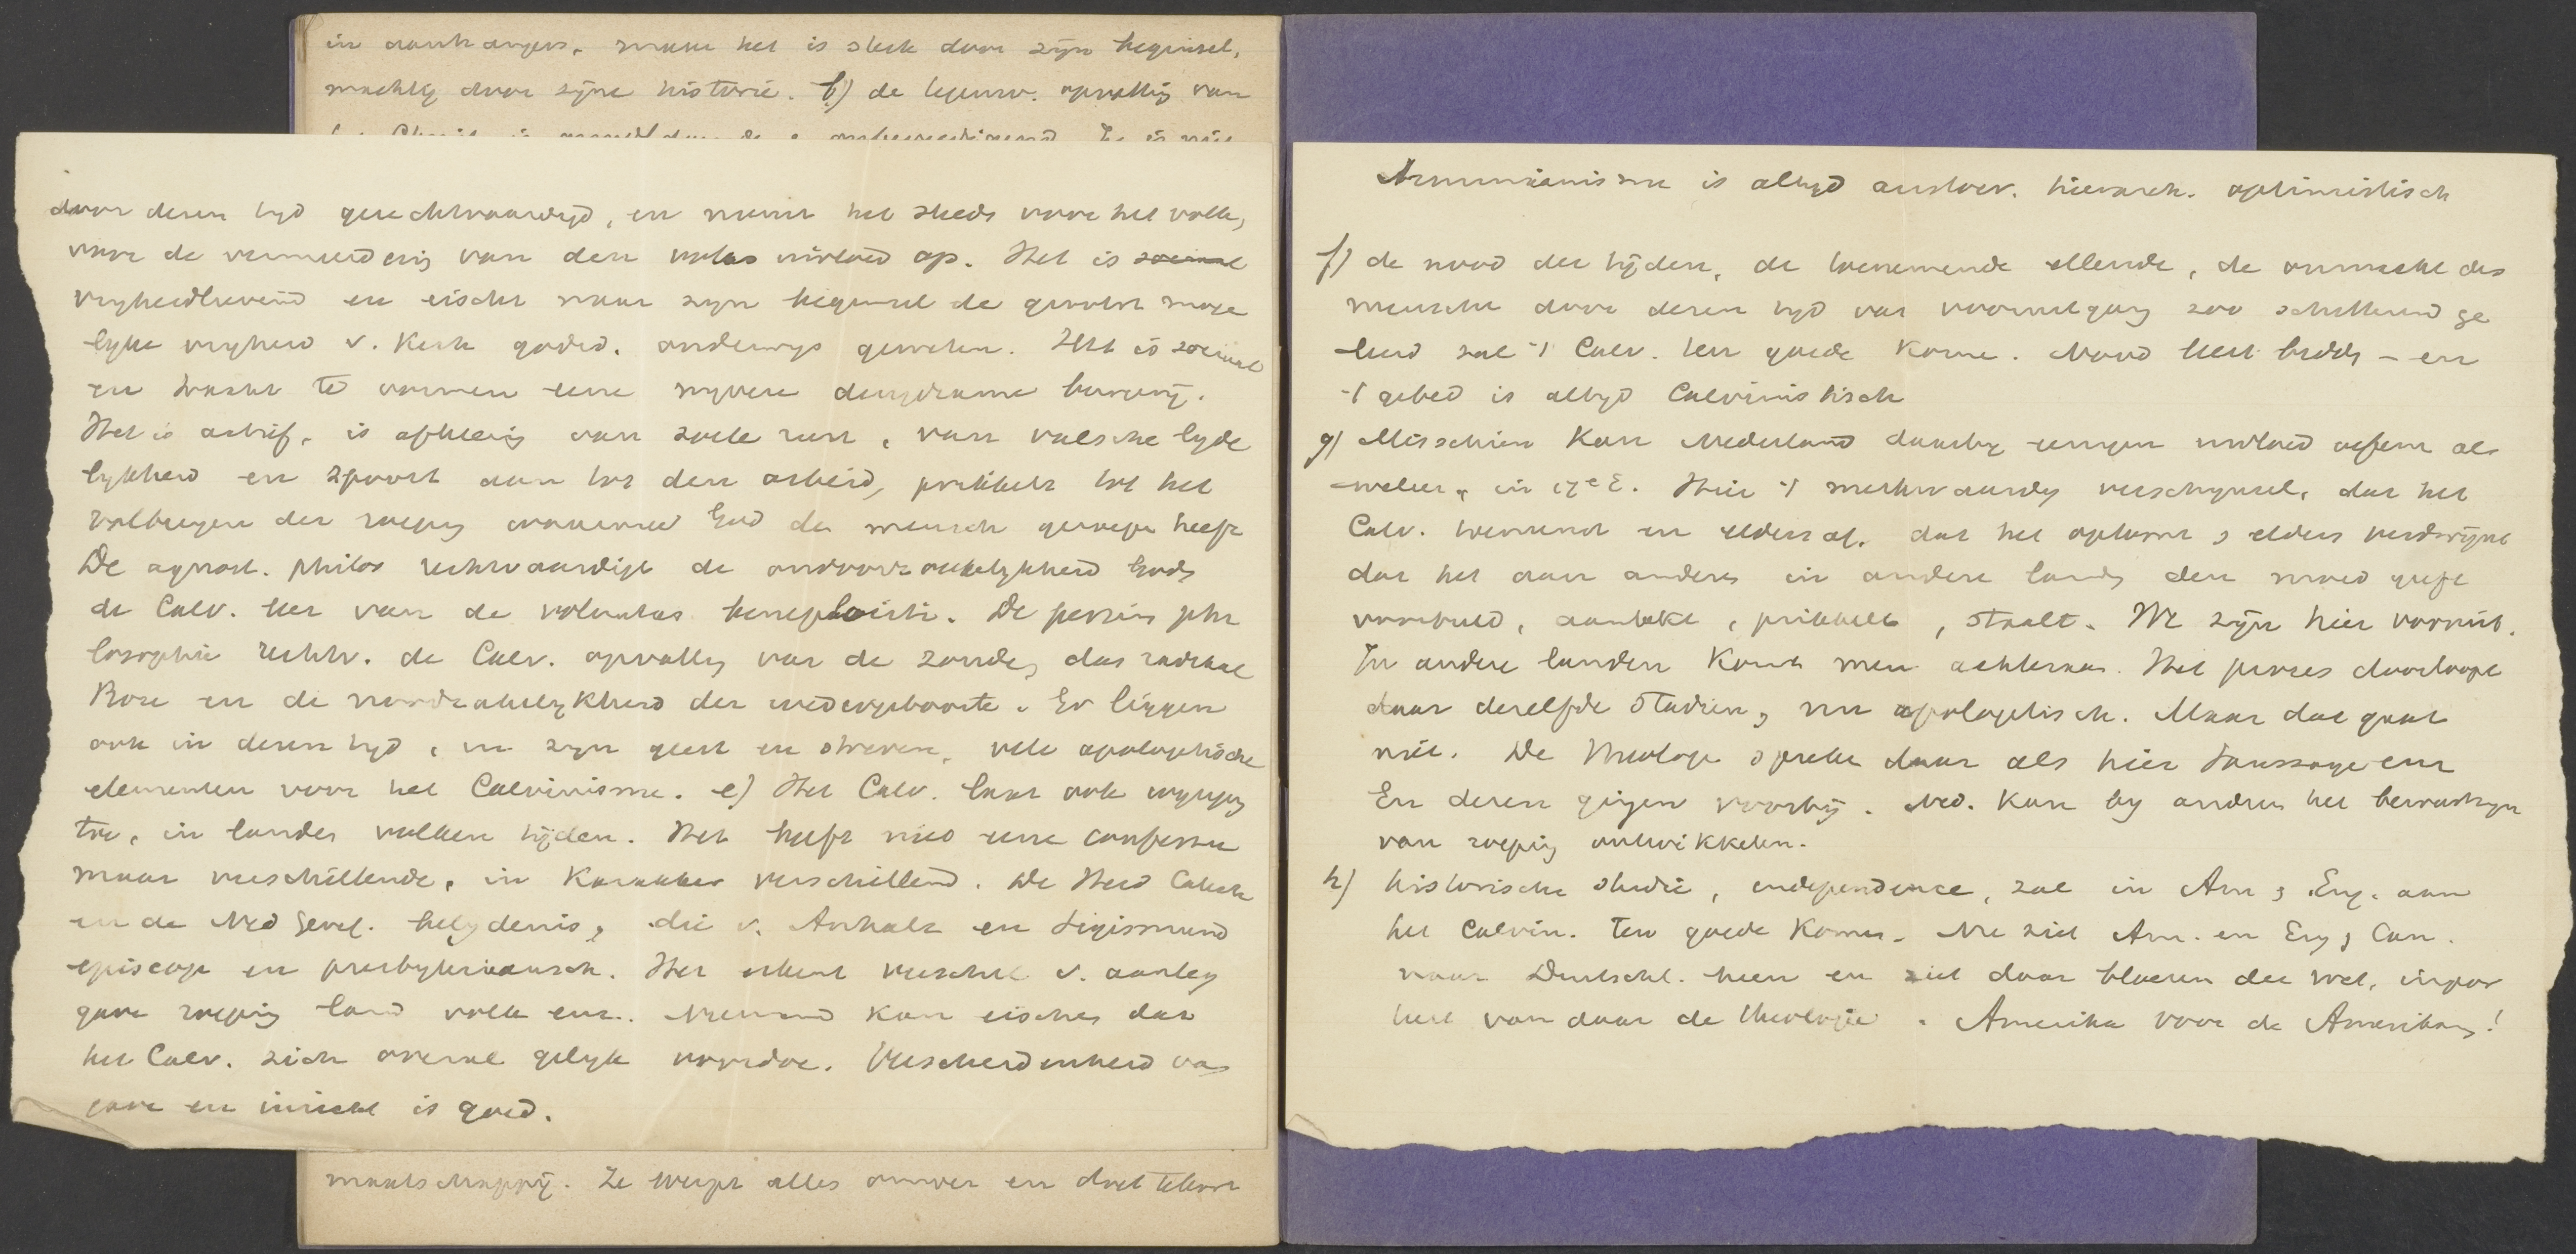 in aanhangers, maar het is sterk door zijn beginsel,
machtig door zijne historie. b) de tegenw. opvattig van
door dezen tyd gerechtvaardigd, en neemt het steeds voor het volk,
voor de vermeerderig van den volks invloed op. Het is sociaal
vryheidlievend en eischt naar zyn beginsel de grootst moge
lyke vryheid v. Kerk godsd. onderwys geweten. Het is sociaal
en tracht te vormen eene nyvere deugdzame burgerij.
Het is actief, is afkeerig van zoete rust, van valsche lyde
lykheid en spoort aan tot den arbeid, prikkelt tot het
volbrengen der roepig waarmee God de mensch geroepen heeft
De agnost. philos rechtvaardigt de ondoorgrondelykheid Gods
de Calv. leer van de voluntas beneplaciti. De pessim phi
losophie rechtv. de Calv. opvattig van de zonde, das radikal
Böse en de noodzakelykheid der wedergeboorte. Er liggen
ook in dezen tyd, in zyn geest en streven, vele apologetische
elementen voor het Calvinisme. e) Het Calv. laat ook wyzigig
toe, in landen volken tijden. Het heeft niet eene confessie
maar verschillende, in karakter verschillend. De Heid Catech
en de Ned Geref. belydenis, die v. Anhalt en Sigismund
episcop en presbyteriaansch. Het erkent verschil v. aanleg
gave roepig land volk enz. Niemand kan eischen dat
het Calv. zich overal gelyk voordoe. Verscheidenheid van
gave en inzicht is goed.
maatschappij. Ze werpt alles omver en doet tekort
Arminianisme is altyd aristocr. hierarch. optimistisch
f) de nood der tijden, de toenemende ellende, de onmacht des
menschen door dezen tyd van vooruitgang zoo schitterend ge
leerd zal 't Calv. ten goede komen. Nood leert bidden - en
't gebed is altyd Calvinistisch
g) Misschien kan Nederland daarby eenigen invloed oefenen als
weleer, in 17e E. Hier 't merkwaardig verschynsel, dat het
Calv. toeneemt en elders af. dat het opkomt & elders verdwijnt
dat het aan anderen in andere landen den moed geeft
voorbeeld, aanlokt, prikkelt, staalt. We zijn hier vooruit.
In andere landen komt men achteraan. Het proces doorloopt
daar dezelfde stadien, nu apologetisch. Maar dat gaat
niet. De theologen spreken daar als hier Saussaye enz
En dezen gingen voorbij. Ned. kan by andren het bewustzyn
van roepig ontwikkelen.
h) historische studie, independence, zal in Am & Eng. aan
het Calvin. ten goede komen. Nu ziet Am. en Eng & Can.
naar Duitschl. heen en ziet daar bloeien de wet, impor
teert van daar de theologie. Amerika voor de Amerikanen!